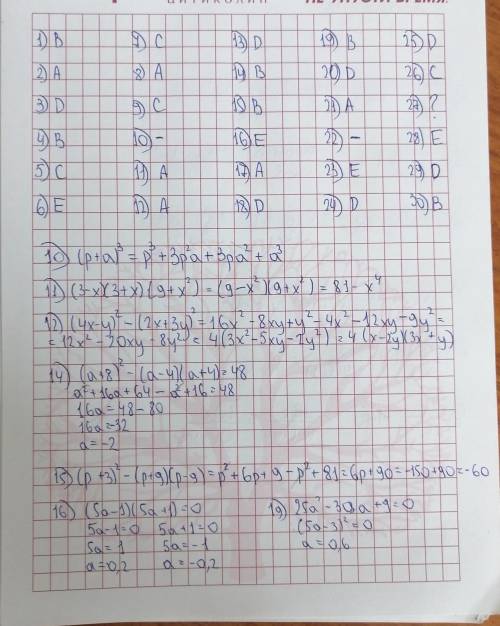 ЦИТИКОЛИН НЕ УПУСТИ ВРЕМЯ.
1) B 7) C 13) D 19) B 25) D
2) A 8) A 14) B 20) D 26) C
3) D 9) C 15) B 21) A 27) ?
4) B 10) – 16) E 22) – 28) E
5) C 11) A 17) A 23) E 29) D
6) E 12) A 18) D 24) D 30) B
10) (p+a)³ = p³ + 3p²a + 3pa² + a³
11) (3-x)(3+x)(9+x²) = (9-x²)(9+x²) = 81 - x⁴
12) (4x-y)² - (2x+3y)² = 16x² - 8xy + y² - 4x² - 12xy - 9y² =
= 12x² - 20xy - 8y² = 4(3x² - 5xy - 2y²) = 4(x-2y)(3x+y)
14) (a+8)² - (a-4)(a+4) = 48
a² + 16a + 64 - a² + 16 = 48
16a = 48 - 80
16a = -32
a = -2
15) (p+3)² - (p+9)(p-9) = p² + 6p + 9 - p² + 81 = 6p + 90 = -150 + 90 = -60
16) (5a-1)(5a+1) = 0 19) 25a² - 30a + 9 = 0
5a-1=0 5a+1=0 (5a-3)² = 0
5a=1 5a=-1 a = 0,6
a=0,2 a=-0,2